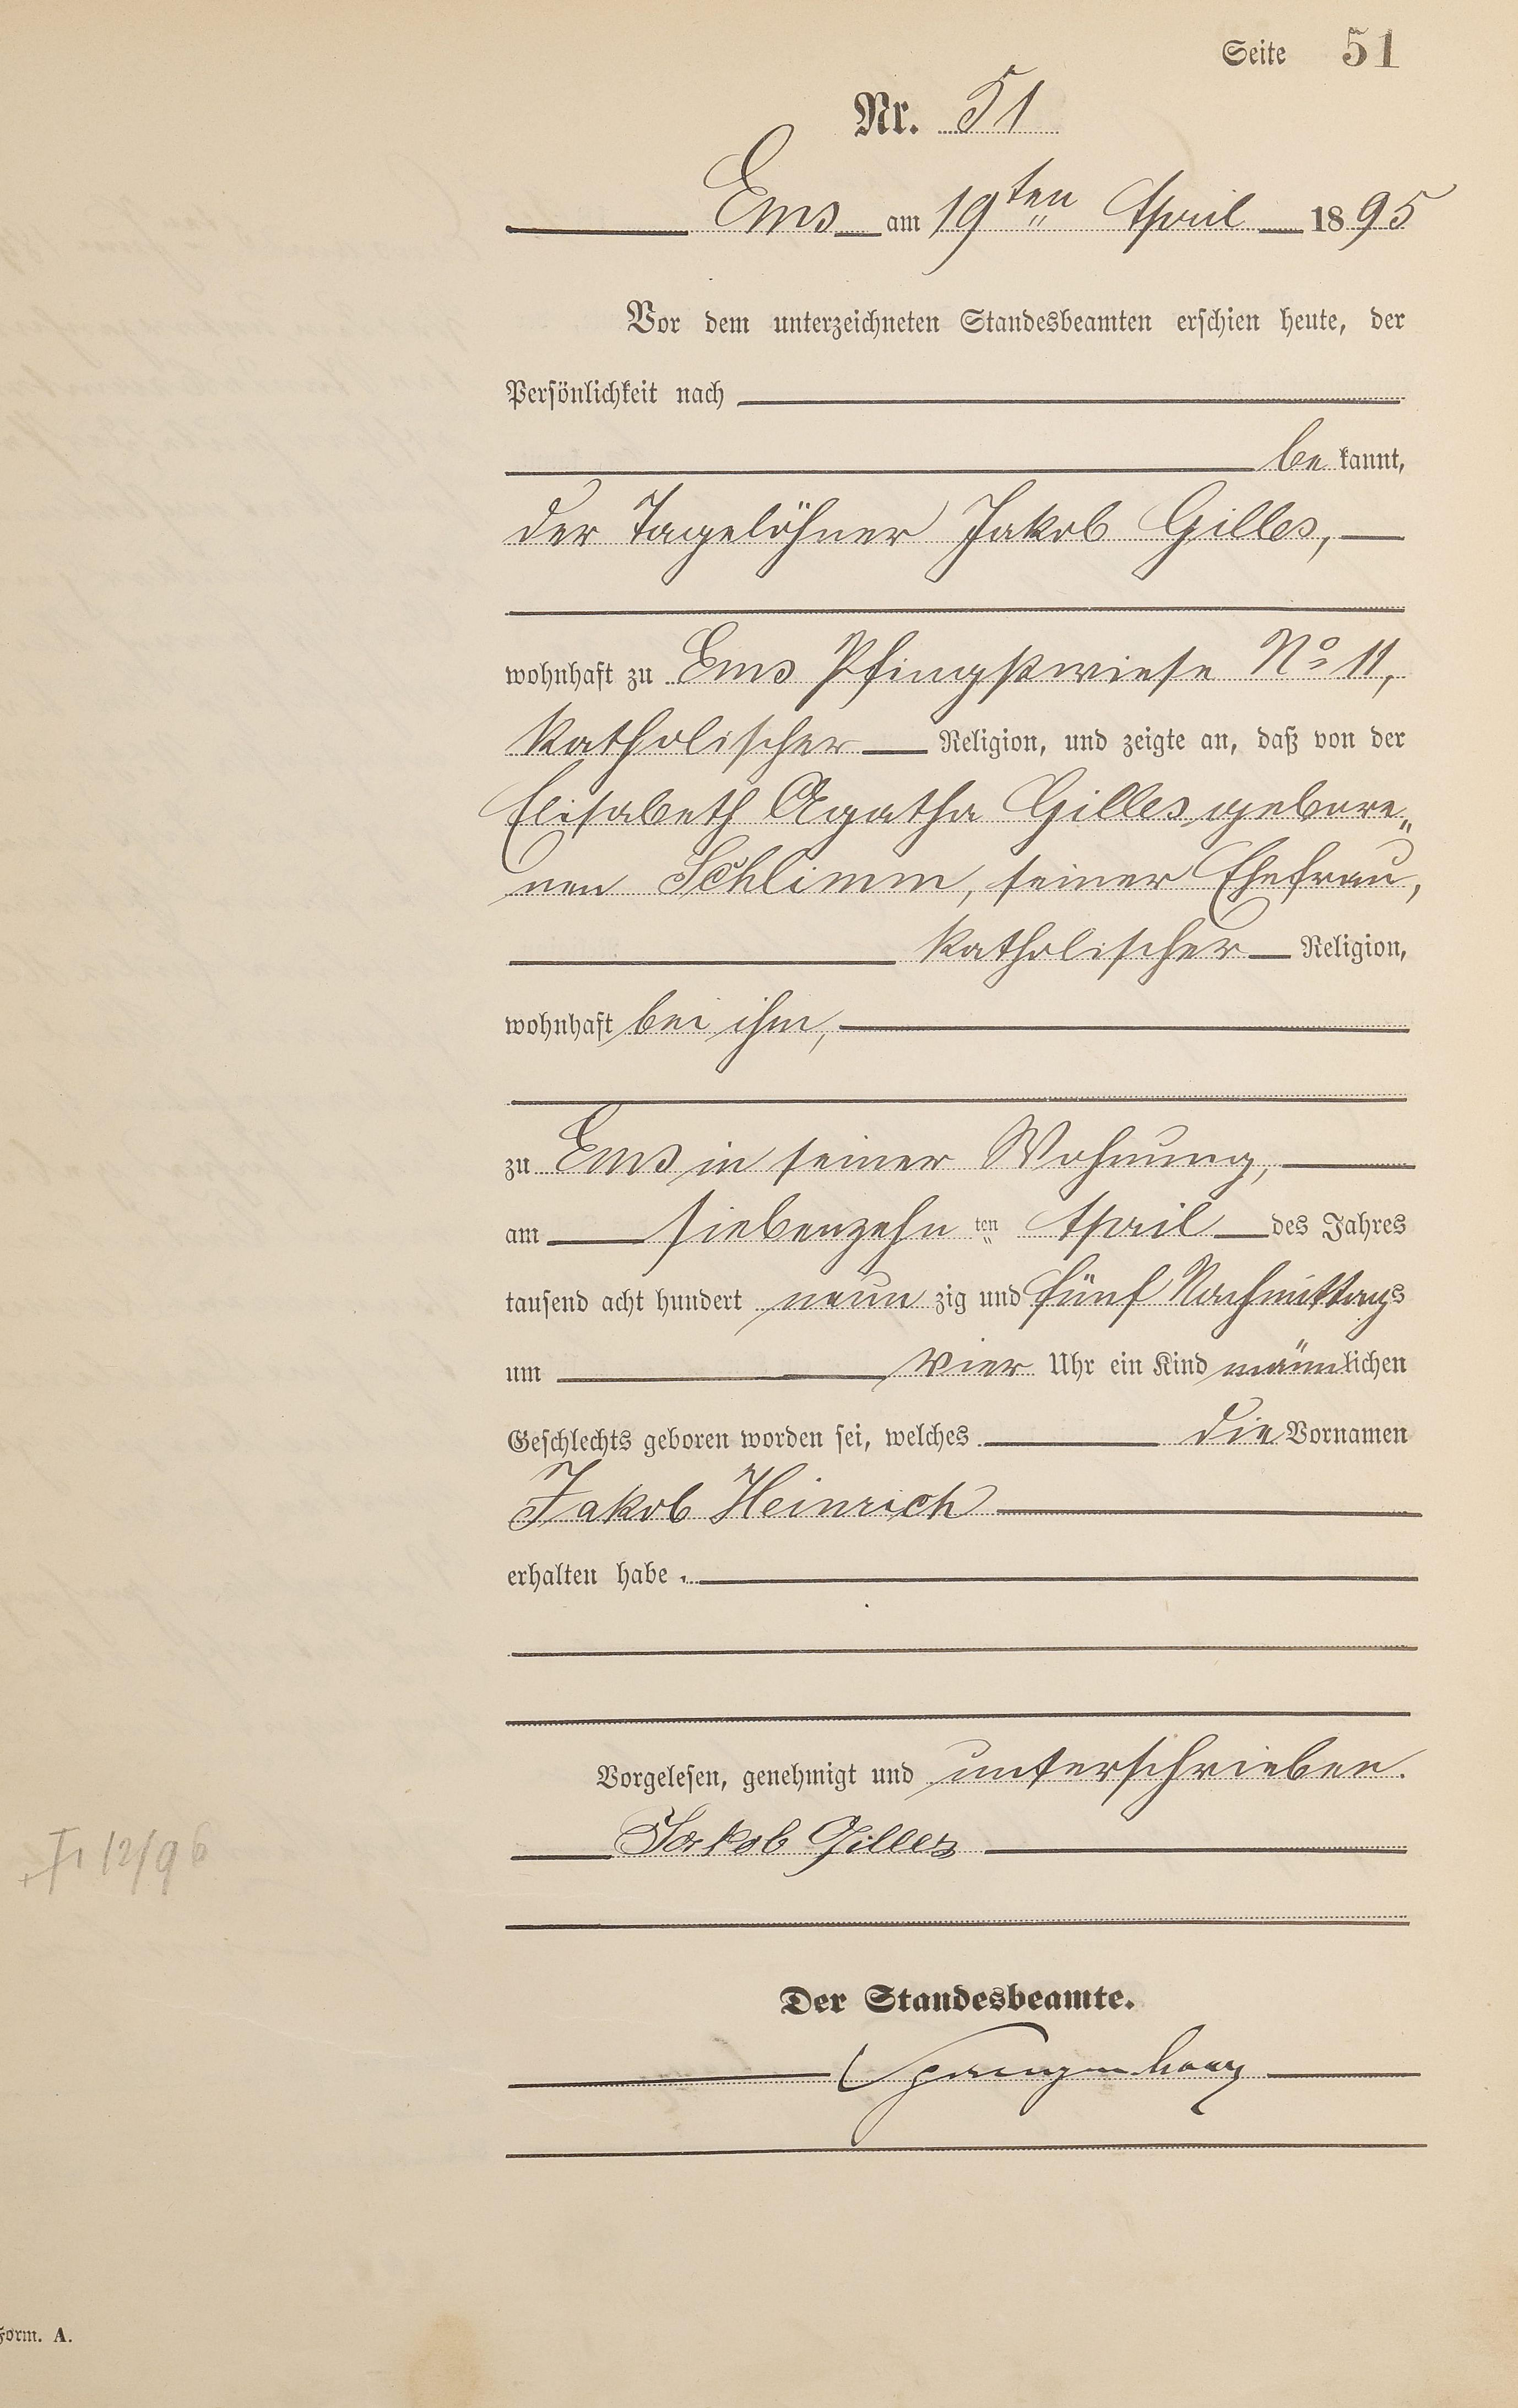 Seite 51
Nr. 51
Ems am 19ten April 1895
Vor dem unterzeichneten Standesbeamten erschien heute, der
Persönlichkeit nach
be kannt,
der Tagelöhner Jakob Gilles,
wohnhaft zu Ems Pfingstwiese No 11,
katholischer Religion, und zeigte an, daß von der
Elisabeth Agatha Gilles gebore„
nen Schlimm, seiner Ehefrau,
katholischer Religion,
wohnhaft bei ihm,
zu Ems in seiner Wohnung,
am siebenzehn ten April des Jahres
tausend acht hundert neun zig und fünf Nachmittags
um vier Uhr ein Kind männlichen
Geschlechts geboren worden sei, welches die Vornamen
Jakob Heinrich
erhalten habe.
Vorgelesen, genehmigt und unterschrieben.
Jakob Gilles
12/96
Der Standesbeamte.
Form. A.